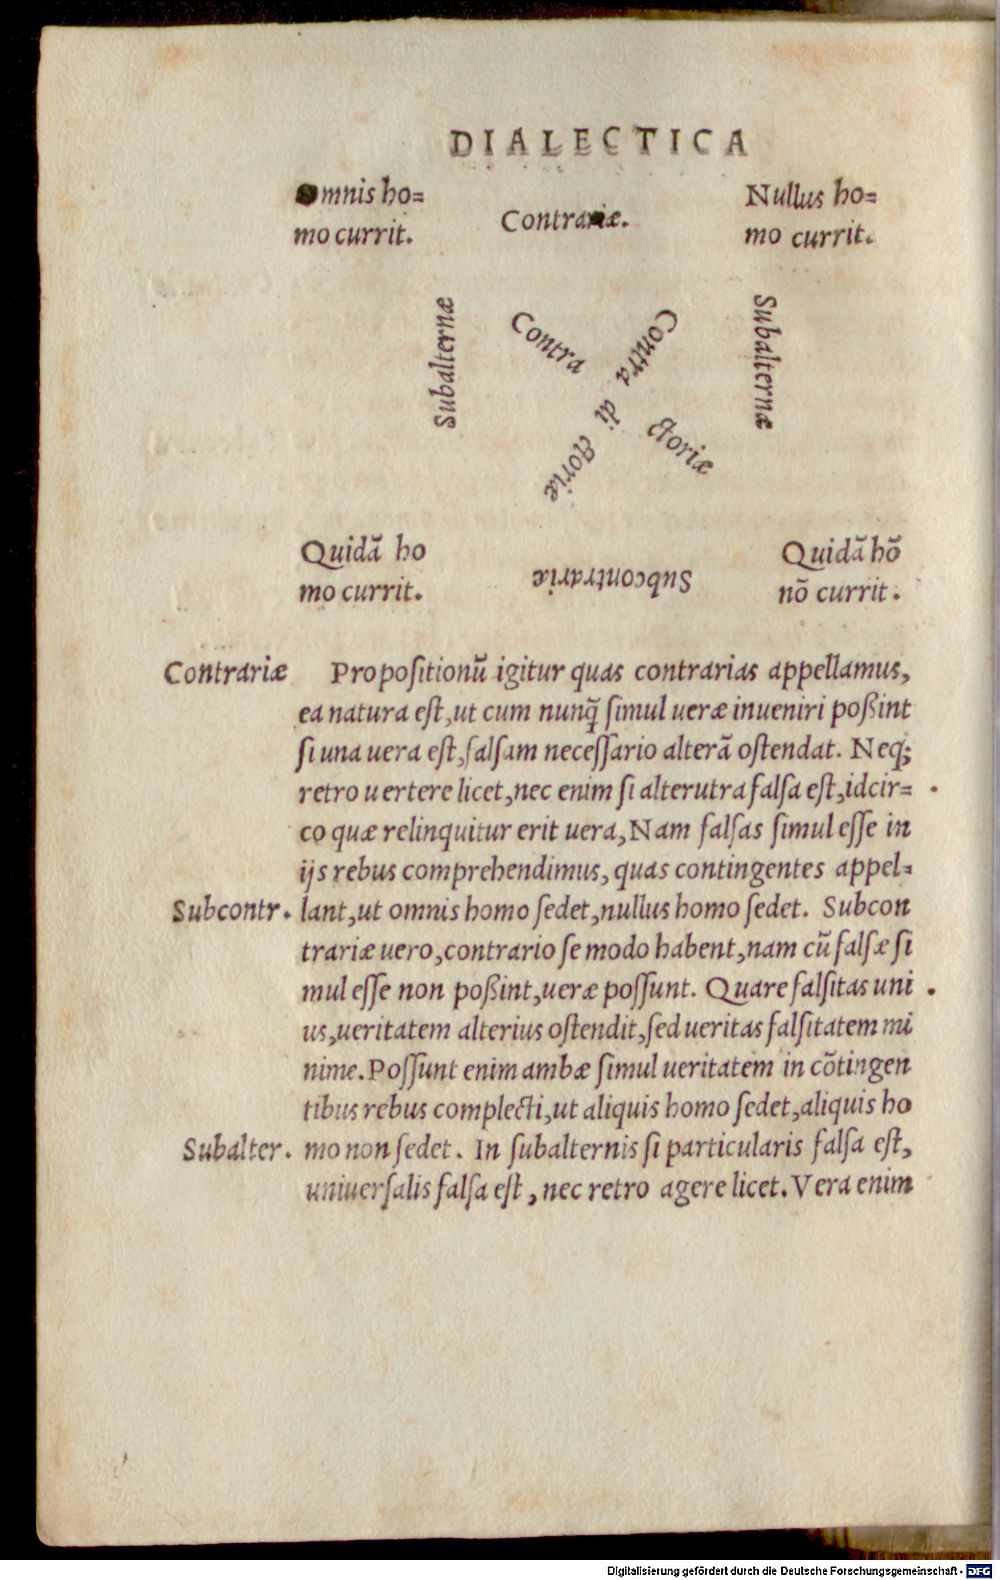 DIALECTICA
Omnis ho=
mo currit.
Contrariæ.
Nullus ho=
mo currit.
Subalternæ
Contra
Contra
di
ctoriæ
ctoriæ
Subalternæ
Quidã ho
mo currit.
Subcontrariæ
Quidã hõ
nõ currit.
Contrariæ Propoſitionũ igitur quas contrarias appellamus,
ea natura eſt, ut cum nunq̃ ſimul ueræ inueniri poßint
ſi una uera eſt, falſam neceſſario alterã oſtendat. Neq;
retro uertere licet, nec enim ſi alterutra falſa eſt, idcir=
co quæ relinquitur erit uera, Nam falſas ſimul eſſe in
ijs rebus comprehendimus, quas contingentes appel=
Subcontr. lant, ut omnis homo ſedet, nullus homo ſedet. Subcon
trariæ uero, contrario ſe modo habent, nam cũ falſæ ſi
mul eſſe non poßint, ueræ poſſunt. Quare falſitas uni
us, ueritatem alterius oſtendit, ſed ueritas falſitatem mi
nime. Poſſunt enim ambæ ſimul ueritatem in cõtingen
tibus rebus complecti, ut aliquis homo ſedet, aliquis ho
Subalter. mo non ſedet. In ſubalternis ſi particularis falſa eſt,
uniuerſalis falſa eſt, nec retro agere licet. Vera enim
Digitalisierung gefördert durch die Deutsche Forschungsgemeinschaft - DFG